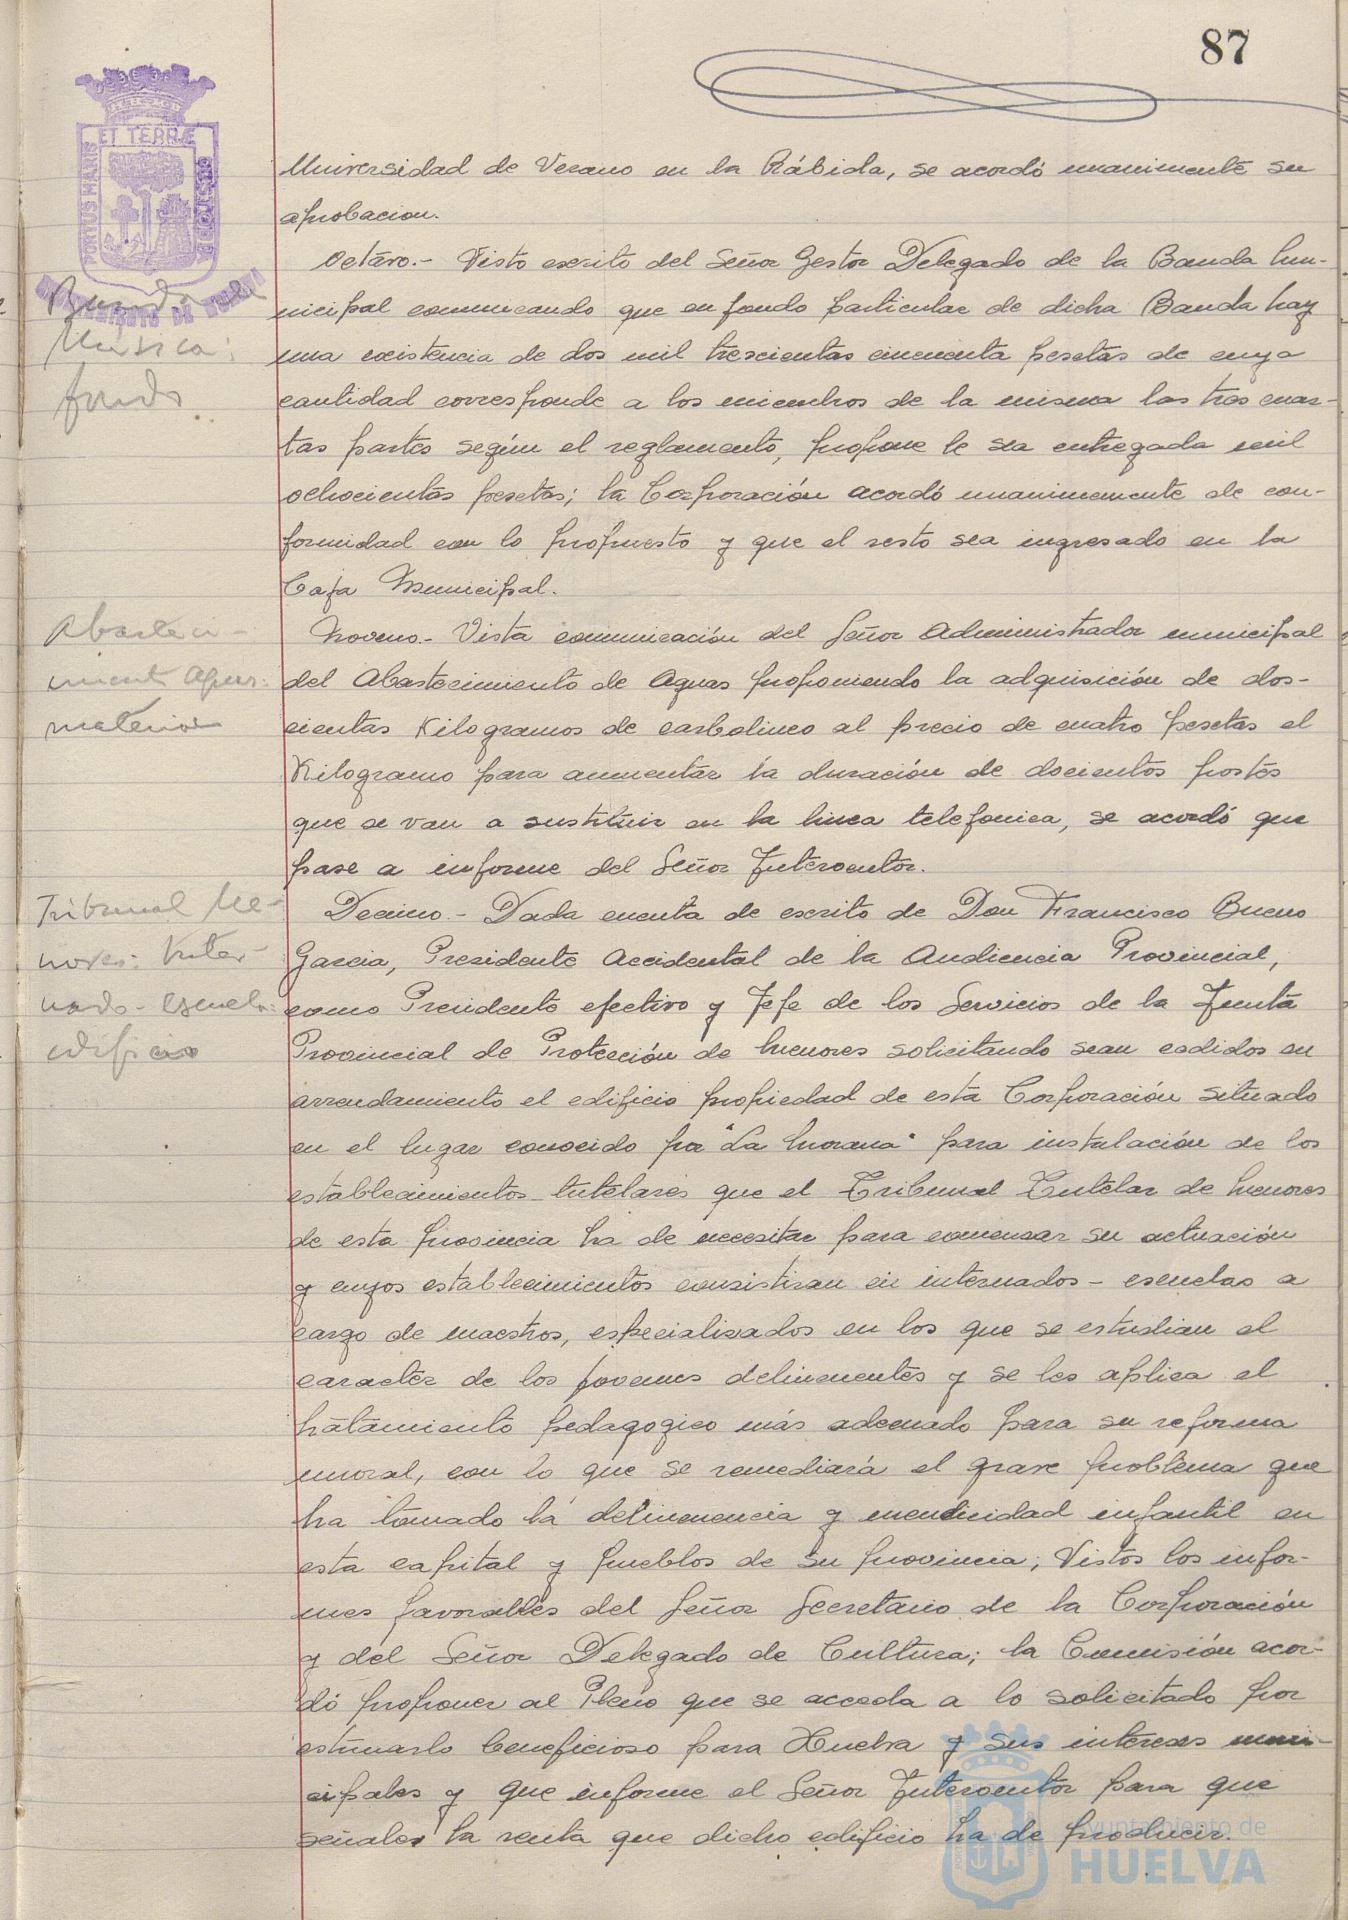 87
PORTUS MARIS
ET TERRÆ
CUSTODIA
AYUNTAMIENTO DE HUELVA
Universidad de Verano en la Rábida, se acordó unanimente su
aprobacion.
Octavo.- Visto escrito del Señor Gestor Delegado de la Banda Mu-
nicipal comunicando que en fondo particular de dicha Banda hay
una existencia de dos mil trescientas cincuenta pesetas de cuya
cantidad corresponde a los miembros de la misma las tres cuar-
tas partes según el reglamento, propone le sea entregada mil
ochocientas pesetas; la Corporación acordó unanimemente de con-
formidad con lo propuesto y que el resto sea ingresado en la
Caja Municipal.
Banda de
Música:
fondo
Noveno.- Vista comunicación del Señor Administrador municipal
del Abastecimiento de Aguas proponiendo la adquisición de dos-
cientas Kilogramos de carbolineo al precio de cuatro pesetas el
Kilogramo para aumentar la duración de docientos postes
que se van a sustituir en la linea telefonica, se acordó que
pase a informe del Señor Interventor.
Abasteci-
miento Aguas:
material
Decimo.- Dada cuenta de escrito de Don Francisco Bueno
Garcia, Presidente Accidental de la Audiencia Provincial,
como Presidente efectivo y Jefe de los Servicios de la Junta
Provincial de Protección de Menores solicitando sean cedidos en
arrendamiento el edificio propiedad de esta Corporación situado
en el lugar conocido por "La Morana" para instalación de los
establecimientos tutelares que el Tribunal Tutelar de Menores
de esta provincia ha de necesitar para comenzar su actuación
y cuyos establecimientos consistiran en internados - escuelas a
cargo de maestros, especialisados en los que se estudian el
caracter de los jovenes delincuentes y se les aplica el
tratamiento pedagogico más adecuado para su reforma
moral, con lo que se remediará el grave problema que
ha tomado la delincuencia y mendicidad infantil en
esta capital y pueblos de su provincia; Vistos los infor-
mes favorables del Señor Secretario de la Corporación
y del Señor Delegado de Cultura; la Comisión acor-
dó proponer al Pleno que se acceda a lo solicitado por
estimarlo beneficioso para Huelva y sus intereses muni-
cipales y que informe el Señor Interventor para que
señale la renta que dicho edificio ha de producir.
Tribunal Me-
nores: Inter-
nado - Escuela:
edificio
Ayuntamiento de
HUELVA